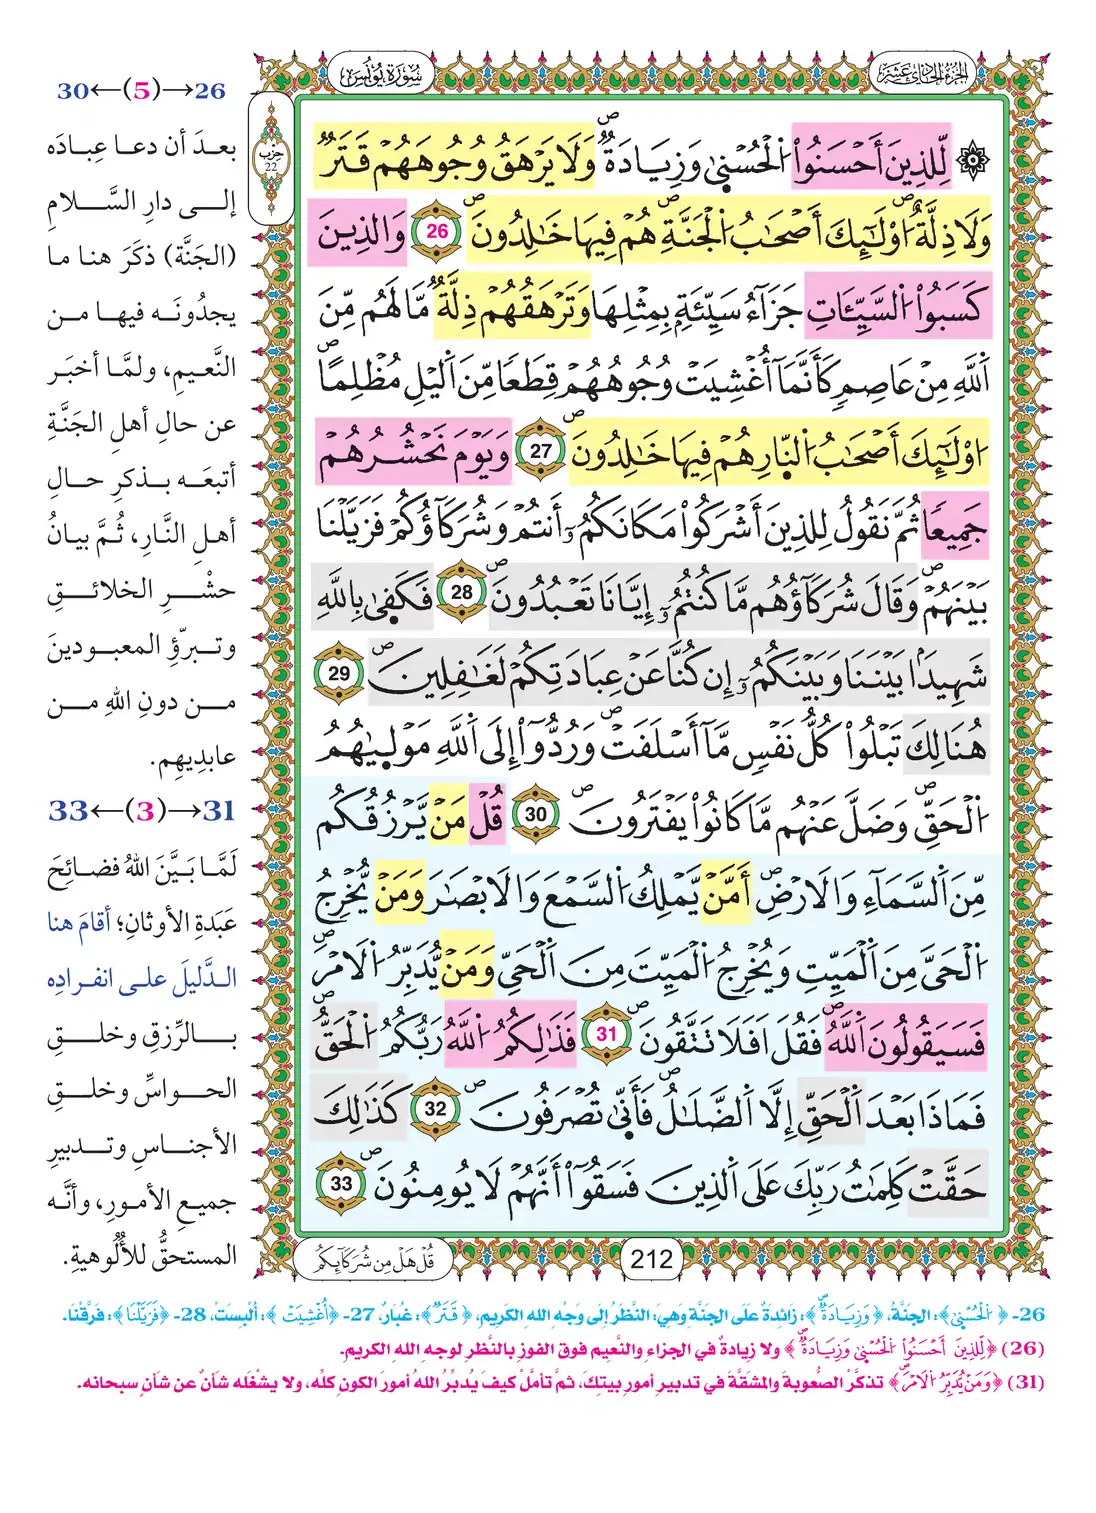 الجزء الحادي عشر
سُورَةُ يُونُسَ
حزب
22
لِّلذِينَ أَحْسَنُواْ اُ۬لْحُسْن۪يٰ وَزِيَادَةٞۖ وَلَا يَرْهَقُ وُجُوهَهُمْ قَتَرٞ
وَلَا ذِلَّةٌۖ ا۟وْلَٰٓئِكَ أَصْحَٰبُ اُ۬لْجَنَّةِۖ هُمْ فِيهَا خَٰلِدُونَۖ 26 وَالذِينَ
كَسَبُواْ اُ۬لسَّيِّـَٔاتِ جَزَآءُ سَيِّئَةِۢ بِمِثْلِهَا وَتَرْهَقُهُمْ ذِلَّةٞۖ مَّا لَهُم مِّنَ
اَ۬للَّهِ مِنْ عَاصِمٖۖ كَأَنَّمَآ أُغْشِيَتْ وُجُوهُهُمْ قِطَعاٗ مِّنَ اَ۬ليْلِ مُظْلِماًۖ
ا۟وْلَٰٓئِكَ أَصْحَٰبُ اُ۬لنّ۪ارِ هُمْ فِيهَا خَٰلِدُونَۖ 27 وَيَوْمَ نَحْشُرُهُمْ
جَمِيعاٗ ثُمَّ نَقُولُ لِلذِينَ أَشْرَكُواْ مَكَانَكُمُۥٓ أَنتُمْ وَشُرَكَآؤُكُمْ فَزَيَّلْنَا
بَيْنَهُمْۖ وَقَالَ شُرَكَآؤُهُم مَّا كُنتُمُۥٓ إِيَّانَا تَعْبُدُونَۖ 28 فَكَف۪يٰ بِاللَّهِ
شَهِيداَۢ بَيْنَنَا وَبَيْنَكُمُۥٓ إِن كُنَّا عَنْ عِبَادَتِكُمْ لَغَٰفِلِينَۖ 29
هُنَالِكَ تَبْلُواْ كُلُّ نَفْسٖ مَّآ أَسْلَفَتْۖ وَرُدُّوٓاْ إِلَى اَ۬للَّهِ مَوْل۪يٰهُمُ
اُ۬لْحَقِّۖ وَضَلَّ عَنْهُم مَّا كَانُواْ يَفْتَرُونَۖ 30 قُلْ مَنْ يَّرْزُقُكُم
مِّنَ اَ۬لسَّمَآءِ وَالَارْضِۖ أَمَّنْ يَّمْلِكُ اُ۬لسَّمْعَ وَالَابْصَٰرَ وَمَنْ يُّخْرِجُ
اُ۬لْحَيَّ مِنَ اَ۬لْمَيِّتِ وَيُخْرِجُ اُ۬لْمَيِّتَ مِنَ اَ۬لْحَيِّ وَمَنْ يُّدَبِّرُ اُ۬لَامْرَۖ
فَسَيَقُولُونَ اَ۬للَّهُۖ فَقُلَ اَفَلَا تَتَّقُونَۖ 31 فَذَٰلِكُمُ اُ۬للَّهُ رَبُّكُمُ اُ۬لْحَقُّۖ
فَمَاذَا بَعْدَ اَ۬لْحَقِّ إِلَّا اَ۬لضَّلَٰلُۖ فَأَنّ۪يٰ تُصْرَفُونَۖ 32 كَذَٰلِكَ
حَقَّتْ كَلِمَٰتُ رَبِّكَ عَلَى اَ۬لذِينَ فَسَقُوٓاْ أَنَّهُمْ لَا يُومِنُونَۖ 33
212
قُلْ هَلْ مِن شُرَكَآئِكُم
26→(5)←30
بعدَ أن دعا عِبادَه
إلى دارِ السَّلامِ
(الجَنَّة) ذكَرَ هنا ما
يجدُونَه فيها من
النَّعيمِ، ولمَّا أخبَر
عن حالِ أهلِ الجَنَّةِ
أتبَعَه بذكرِ حالِ
أهلِ النَّارِ، ثُمَّ بيانُ
حشْرِ الخلائقِ
وتبرّؤِ المعبودينَ
من دونِ اللهِ من
عابدِيهِم.
31→(3)←33
لَمَّا بَيَّنَ اللهُ فضائِحَ
عَبَدةِ الأوثانِ؛ أقامَ هنا
الدَّليلَ على انفرادِه
بالرِّزقِ وخلقِ
الحواسِّ وخلقِ
الأجناسِ وتدبيرِ
جميعِ الأمورِ، وأنَّه
المستحقُّ للأُلُوهيةِ.
26- ﴿اُ۬لْحُسْن۪يٰ﴾: الجنَّةُ، ﴿وَزِيَادَةٞۖ﴾: زائدةٌ على الجنَّة وهيَ: النَّظرُ إلى وجْهِ اللهِ الكَريمِ، ﴿قَتَرٞ﴾: غُبارٌ، 27- ﴿أُغْشِيَتْ﴾: أُلبِستْ، 28- ﴿فَزَيَّلْنَا﴾: فرَّقْنَا.
(26) ﴿لِّلذِينَ أَحْسَنُواْ اُ۬لْحُسْن۪يٰ وَزِيَادَةٞۖ﴾ ولا زيادةَ في الجزاءِ والنَّعيم فوق الفوز بالنَّظرِ لوجهِ اللهِ الكريم.
(31) ﴿وَمَنْ يُّدَبِّرُ اُ۬لَامْرَۖ﴾ تذكَّر الصُّعوبةَ والمشقَّةَ في تدبيرِ أمورِ بيتِكَ، ثمَّ تأمَّلْ كيفَ يدبِّرُ اللهُ أمورَ الكونِ كلِّه، ولا يشغْلُه شأنٌ عن شأنٍ سبحانه.